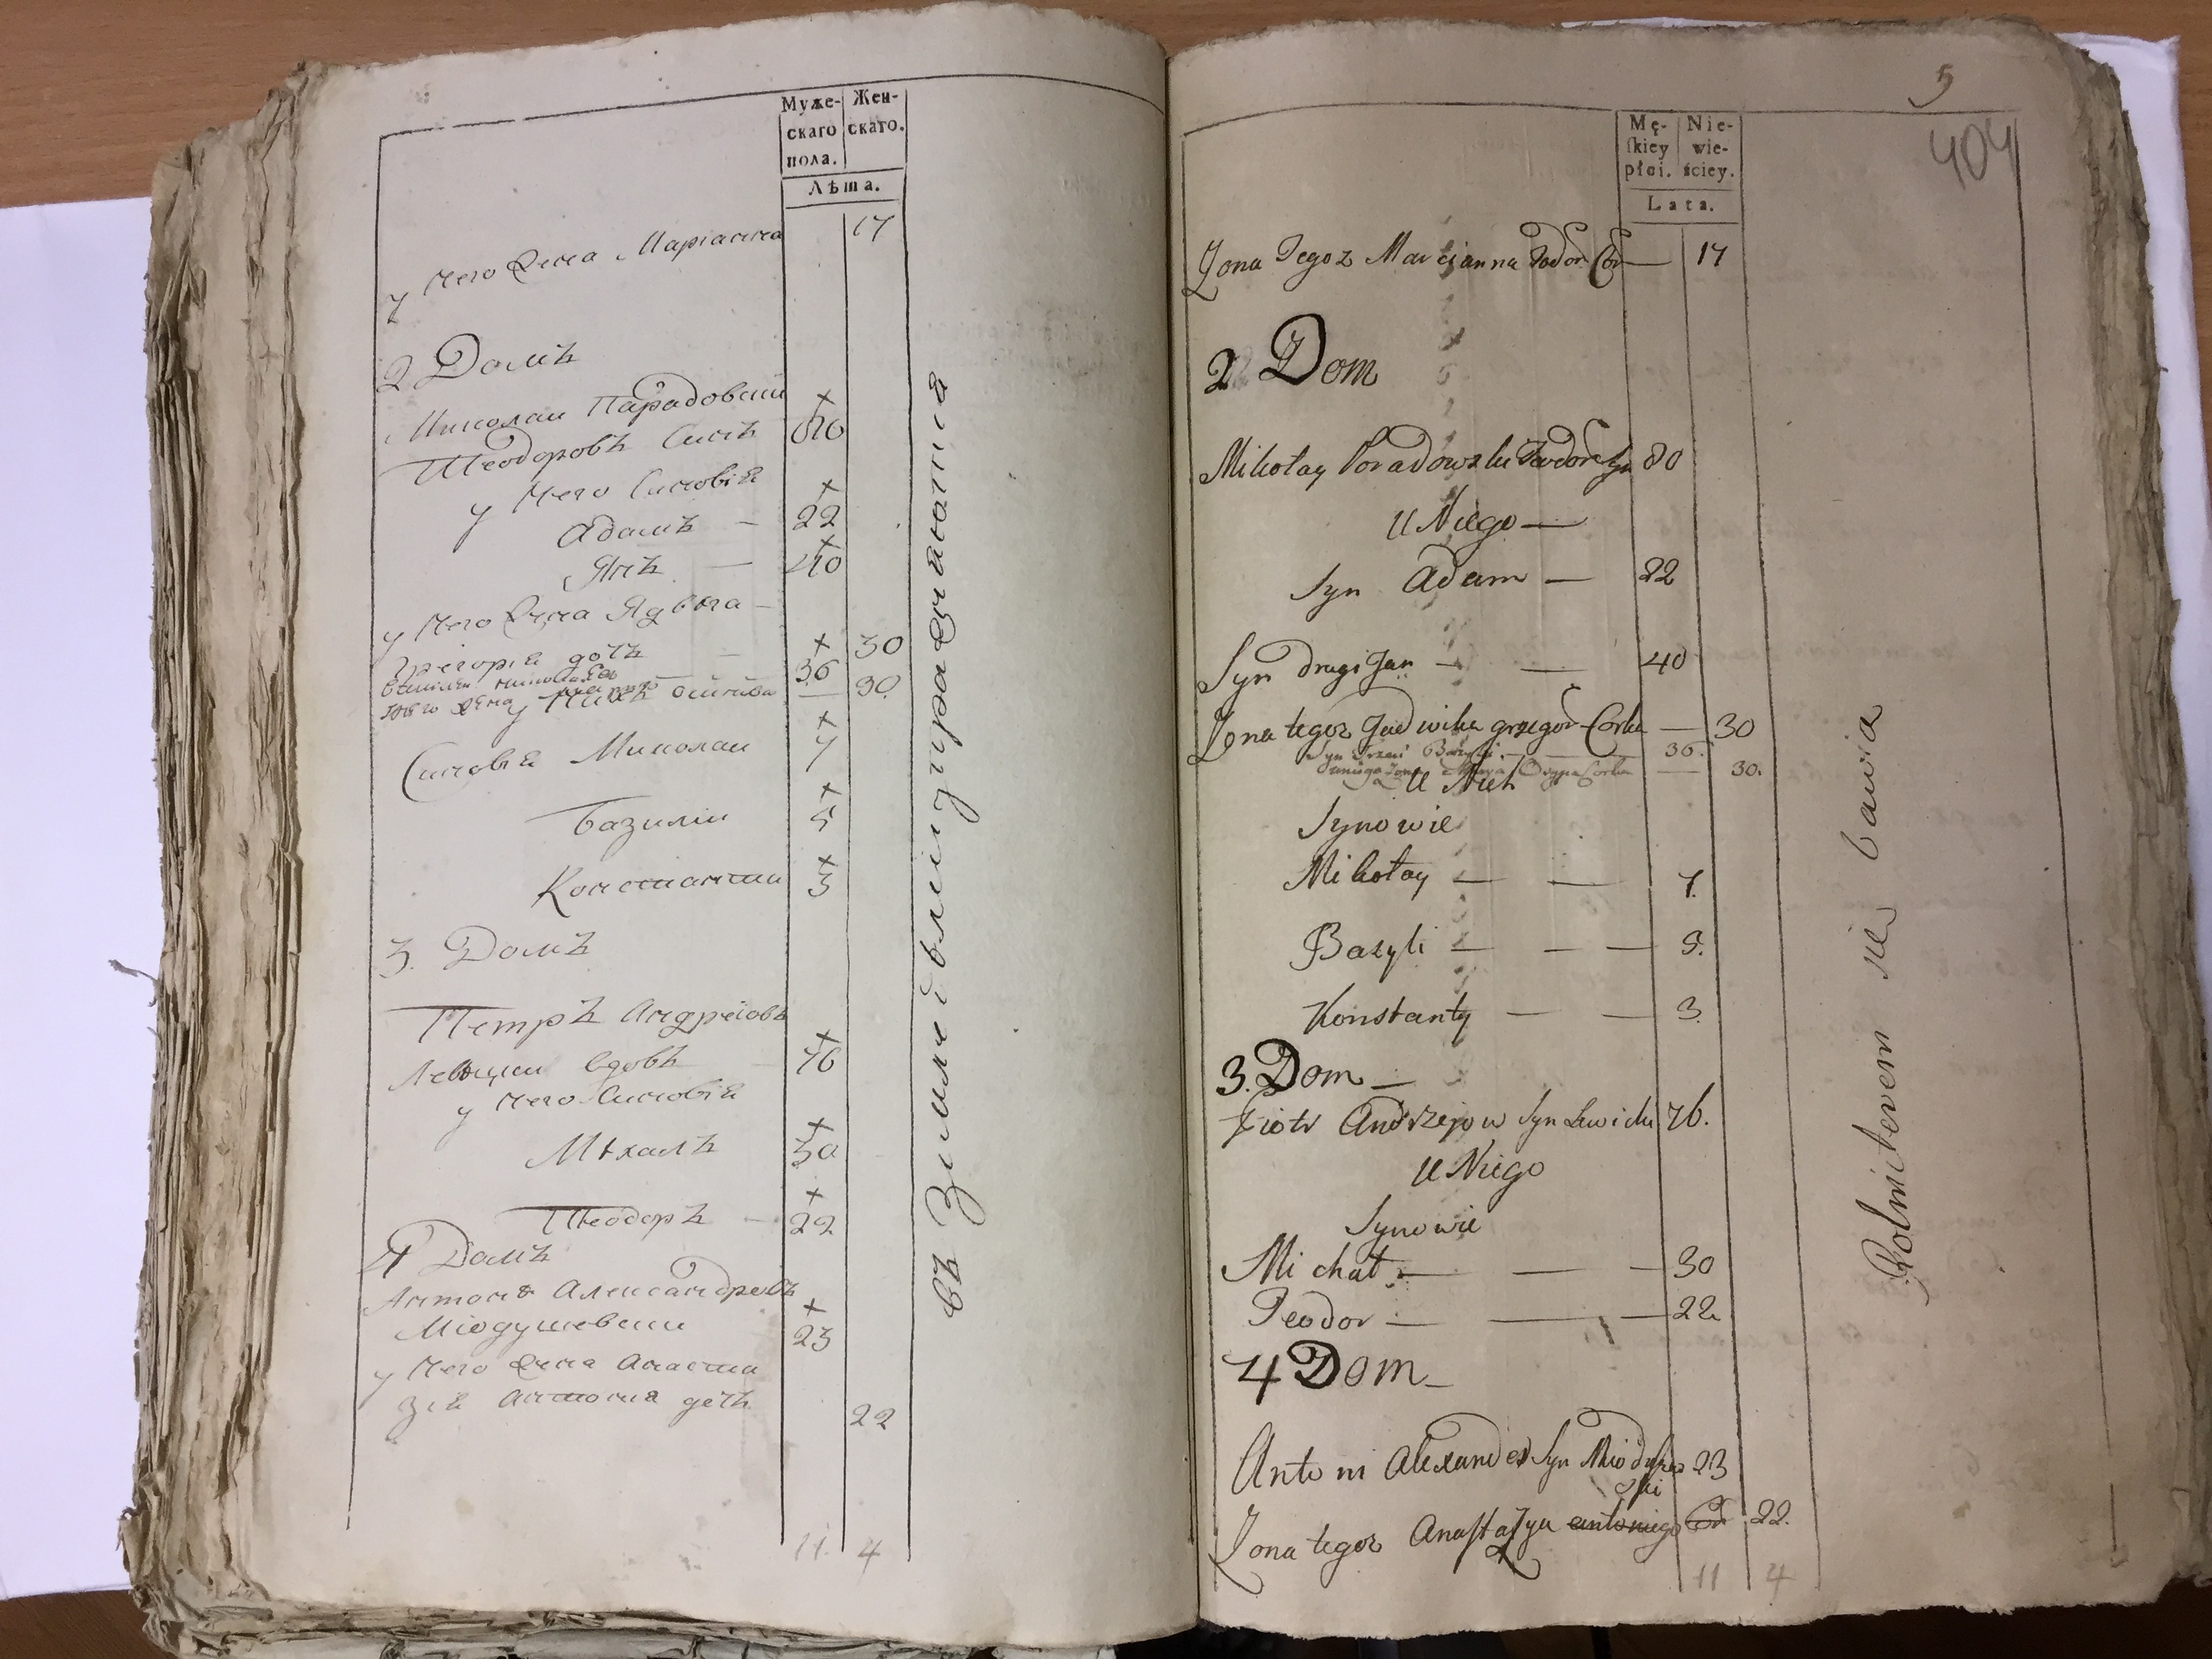 Муже-
скаго
пола.
Жен-
скаго.
Лѣта.
у него жена Марианна 17
2 Домъ
Николай Парадовски
Теодоровъ Синъ 80
у него Синовія
Адамъ — 22
Янъ — 40
у него жена Ядвига —
Григорія дочь — 30
36
30
Синовія Николай 7
Базилій 5
Константи 3
3. Домъ
Петръ Андреіовъ
Левицки вдовъ 76
у него Синовія
Михалъ 30
Теодоръ — 22
4 Домъ
Антонъ Александровъ
Міодушевски 23
у него жена Анаста
зія Антонія дочь 22
11. 4
въ Земледѣліи упражняютца
5
404
Mę-
skiey
płci.
Nie-
wie-
ściey.
Lata.
Żona Tegoż Marcjanna Teodor Cór — 17
2 Dom
Mikołay Poradowski Teodora Syn 80
U Niego —
Syn Adam — 22
Syn drugi Jan — — 40
Żona tegoż Jadwika grzegor Corka — 30
Syn Trzeci Bazyli — 36.
Żona Corka — 30.
U Nich
Synowie
Mikołay — — 7.
Bazyli — — — 5.
Konstanty — — 3.
3. Dom —
Piotr Andrzejow Syn Lewicki 76.
U Niego
Synowie
Michał — — — 30
Teodor — — — 22
4 Dom —
Antoni Alexander Syn Mioduszew 23
ski
Żona tegoż Anastazya antoniego Cór 22.
11 4
Rolnictwem się bawią